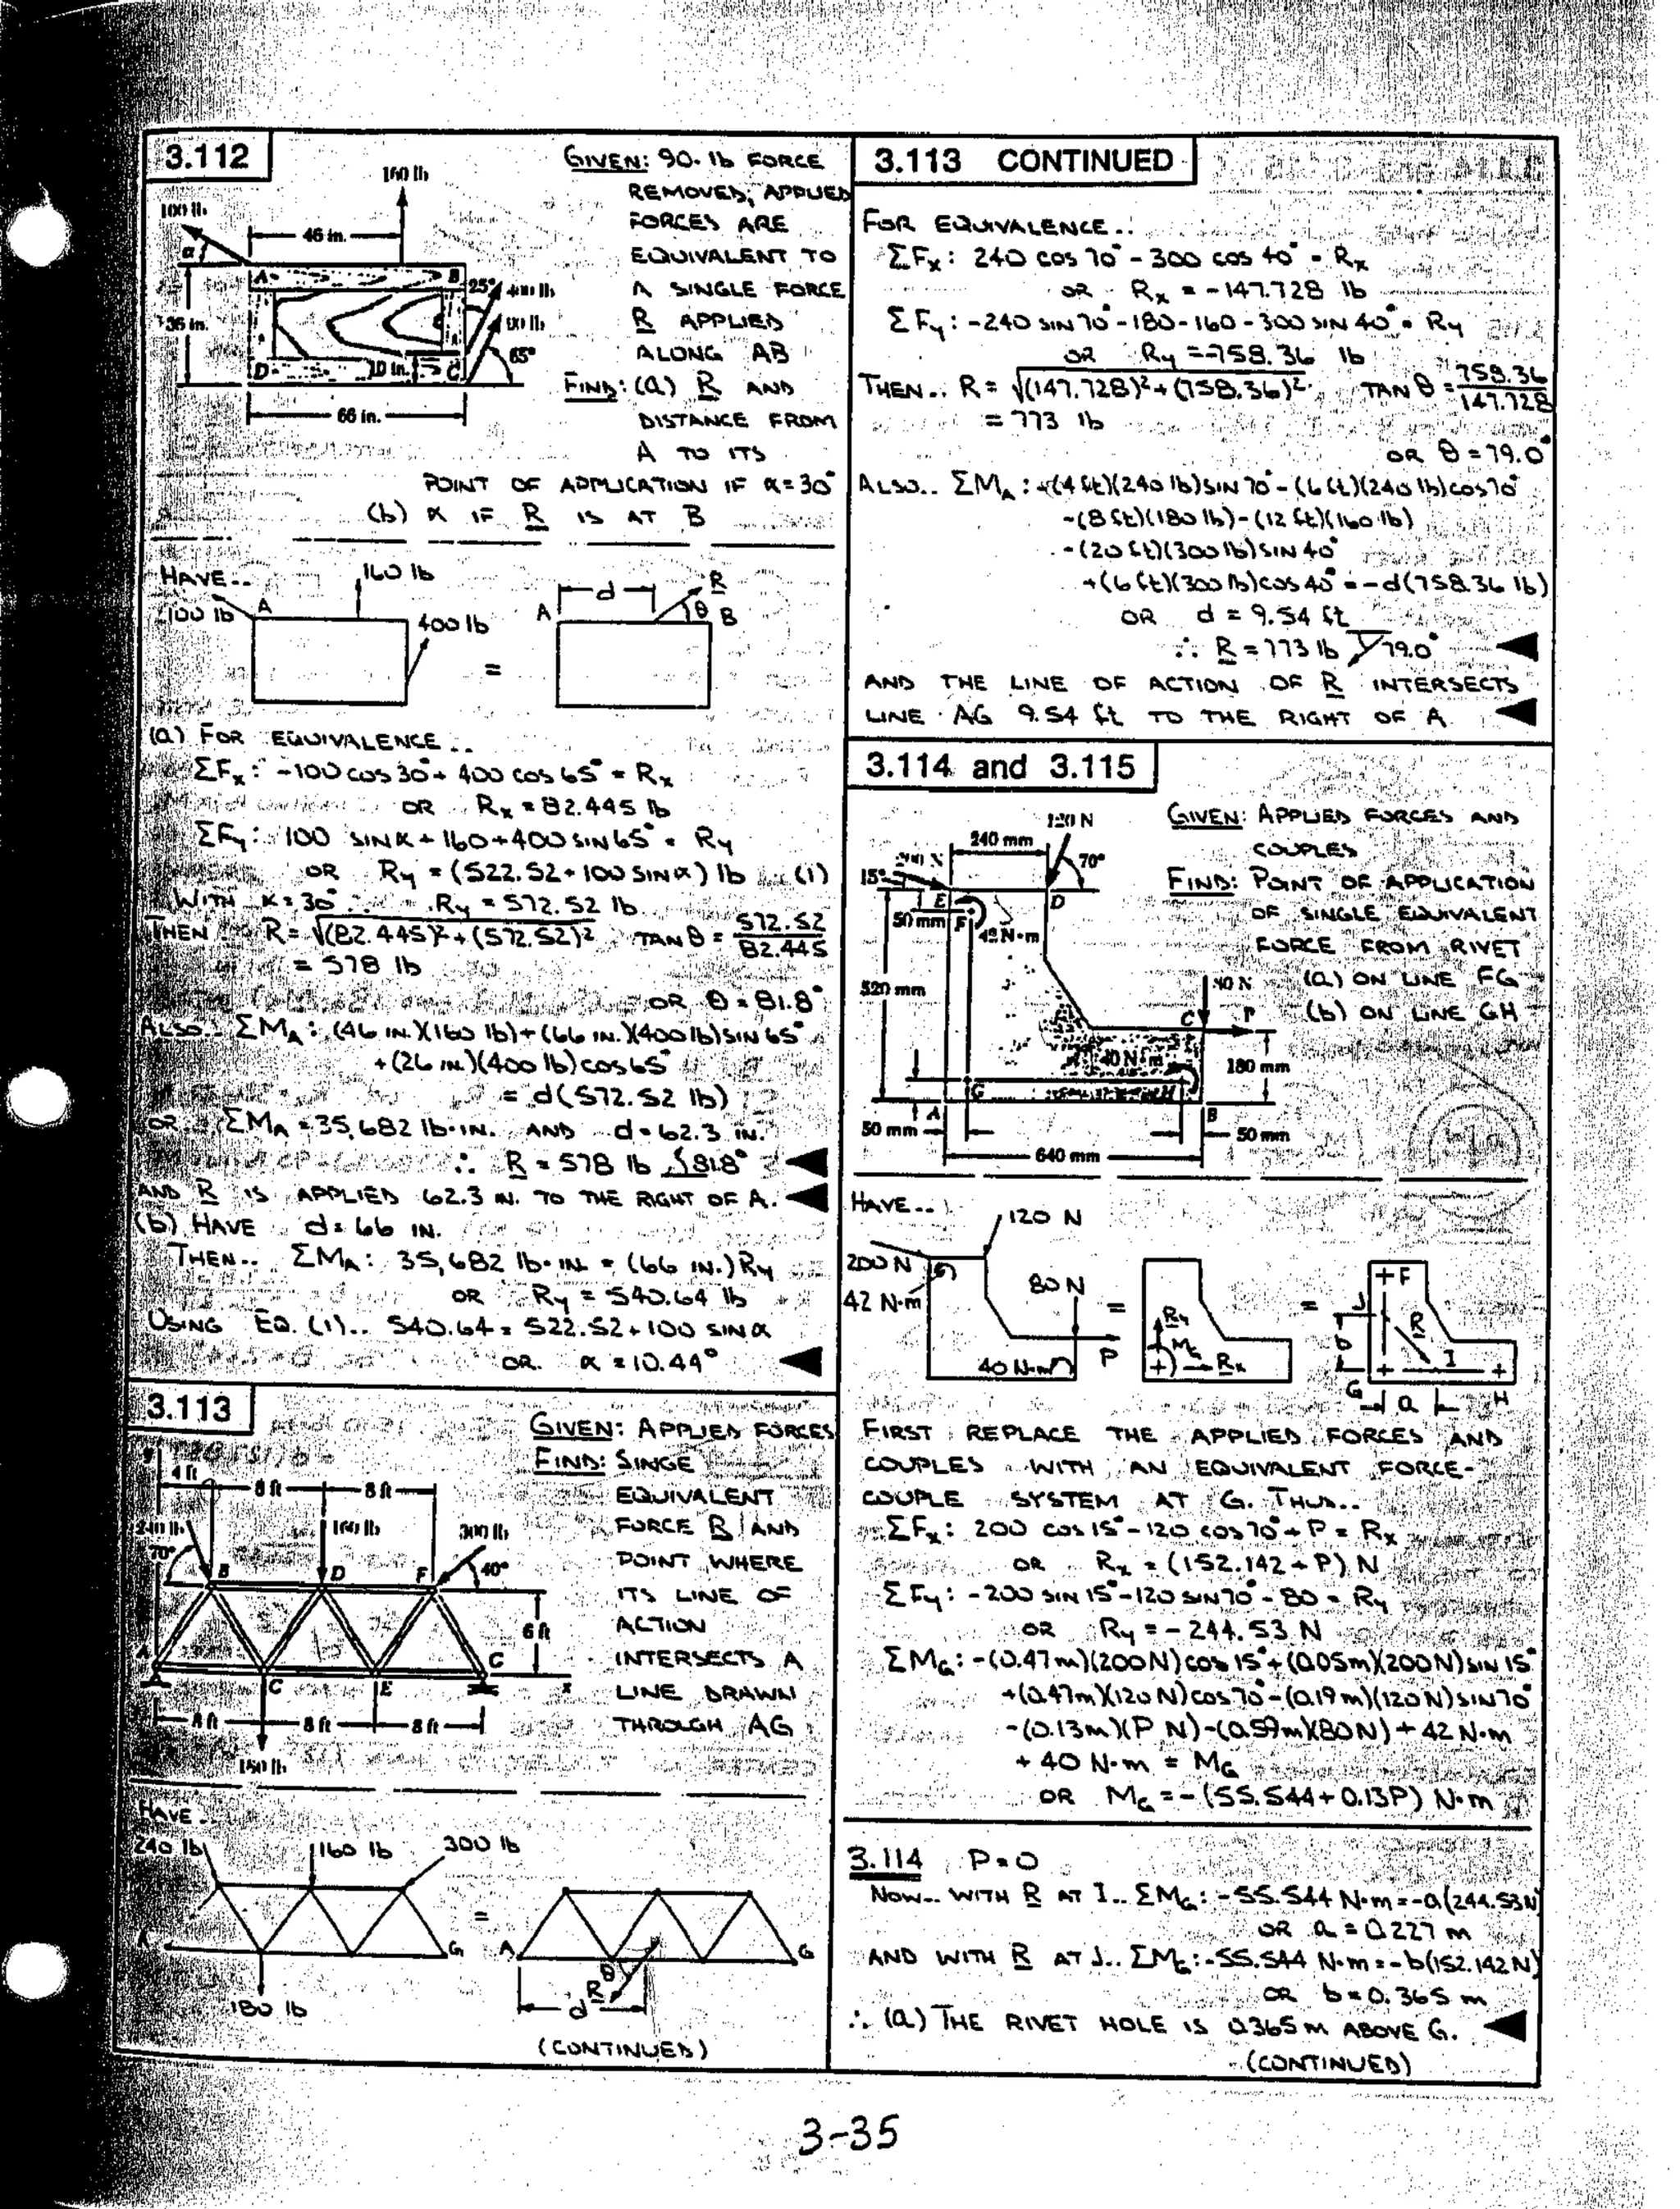 3.112
GIVEN: 90-lb FORCE
REMOVED; APPLIED
FORCES ARE
EQUIVALENT TO
A SINGLE FORCE
R APPLIED
ALONG AB
FIND: (a) R AND
DISTANCE FROM
A TO ITS
POINT OF APPLICATION IF α=30°
(b) α IF R IS AT B
160 lb
100 lb
46 in.
α
A
B
25°
400 lb
36 in.
90 lb
65°
D
10 in.
C
66 in.
HAVE..
160 lb
100 lb
A
400 lb
=
d
R
A
θ
B
(a) FOR EQUIVALENCE..
ΣFx: -100 cos 30° + 400 cos 65° = Rx
OR Rx = 82.445 lb
ΣFy: 100 SIN α + 160 + 400 SIN 65° = Ry
OR Ry = (522.52 + 100 SIN α) lb (1)
WITH α = 30° Ry = 572.52 lb
THEN R = √(82.445)²+(572.52)² TAN θ = 572.52/82.445
= 578 lb
OR θ = 81.8°
ALSO.. ΣMA: (46 IN.)(160 lb)+(66 IN.)(400 lb) SIN 65°
+(26 IN.)(400 lb) cos 65°
= d(572.52 lb)
OR ΣMA = 35,682 lb·IN. AND d = 62.3 IN.
∴ R = 578 lb 81.8°
AND R IS APPLIED 62.3 IN. TO THE RIGHT OF A.
(b) HAVE d = 66 IN.
THEN.. ΣMA: 35,682 lb·IN. = (66 IN.) Ry
OR Ry = 540.64 lb
USING EQ. (1).. 540.64 = 522.52 + 100 SIN α
OR α = 10.44°
3.113
GIVEN: APPLIED FORCES
FIND: SINGE
EQUIVALENT
FORCE R AND
POINT WHERE
ITS LINE OF
ACTION
INTERSECTS A
LINE DRAWN
THROUGH AG
y
4 ft
8 ft
8 ft
240 lb
160 lb
300 lb
70°
B
D
F
40°
6 ft
A
C
E
G
x
8 ft
8 ft
8 ft
180 lb
HAVE..
240 lb
160 lb
300 lb
A
G
180 lb
=
A
G
θ
R
d
(CONTINUED)
3.113 CONTINUED
FOR EQUIVALENCE..
ΣFx: 240 cos 70° - 300 cos 40° = Rx
OR Rx = -147.728 lb
ΣFy: -240 SIN 70° - 180 - 160 - 300 SIN 40° = Ry
OR Ry = -758.36 lb
THEN.. R = √(147.728)²+(758.36)² TAN θ = 758.36/147.728
= 773 lb
OR θ = 79.0°
ALSO.. ΣMA: -(4 ft)(240 lb) SIN 70° - (6 ft)(240 lb) cos 70°
-(8 ft)(180 lb)-(12 ft)(160 lb)
-(20 ft)(300 lb) SIN 40°
+(6 ft)(300 lb) cos 40° = -d(758.36 lb)
OR d = 9.54 ft
∴ R = 773 lb 79.0°
AND THE LINE OF ACTION OF R INTERSECTS
LINE AG 9.54 ft TO THE RIGHT OF A.
3.114 and 3.115
GIVEN: APPLIED FORCES AND
COUPLES
FIND: POINT OF APPLICATION
OF SINGLE EQUIVALENT
FORCE FROM RIVET
(a) ON LINE FG
(b) ON LINE GH
120 N
240 mm
200 N
70°
15°
E
D
50 mm
F
42 N·m
520 mm
80 N
C
P
40 N·m
180 mm
G
H
A
B
50 mm
50 mm
640 mm
HAVE..
120 N
200 N
42 N·m
80 N
P
40 N·m
=
Ry
MG
Rx
=
F
J
R
b
I
G
a
H
FIRST REPLACE THE APPLIED FORCES AND
COUPLES WITH AN EQUIVALENT FORCE-
COUPLE SYSTEM AT G. THUS..
ΣFx: 200 cos 15° - 120 cos 70° + P = Rx
OR Rx = (152.142 + P) N
ΣFy: -200 SIN 15° - 120 SIN 70° - 80 = Ry
OR Ry = -244.53 N
ΣMG: -(0.47m)(200N) cos 15° + (0.05m)(200N) SIN 15°
+(0.47m)(120 N) cos 70° - (0.19 m)(120N) SIN 70°
-(0.13m)(P N)-(0.59m)(80N) + 42 N·m
+ 40 N·m = MG
OR MG = -(55.544 + 0.13P) N·m
3.114 P=0
NOW.. WITH R AT I.. ΣMG: -55.544 N·m = -a(244.53N)
OR a = 0.227 m
AND WITH R AT J.. ΣMG: -55.544 N·m = -b(152.142 N)
OR b = 0.365 m
∴ (a) THE RIVET HOLE IS 0.365 m ABOVE G.
(CONTINUED)
3-35